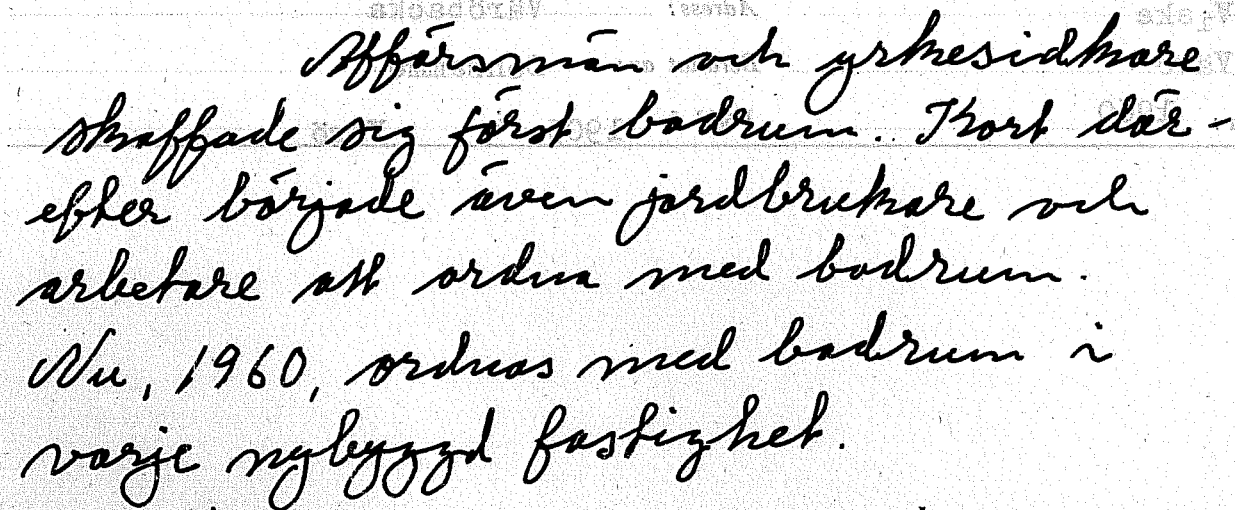 Affärsmän och yrkesidkare
skaffade sig först badrum. Kort där-
efter började även jordbrukare och
arbetare att ordna med badrum.
Nu, 1960, ordnas med badrum i
varje nybyggd fastighet.